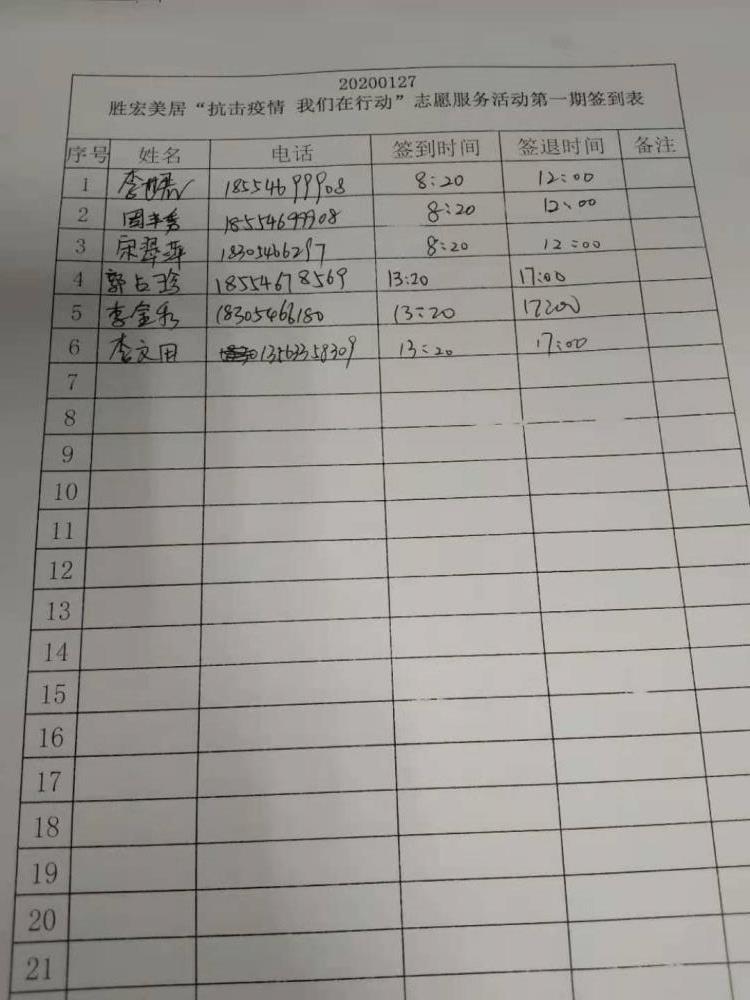 20200127
胜宏美居“抗击疫情 我们在行动”志愿服务活动第一期签到表
序号 姓名 电话 签到时间 签退时间 备注
1 李 18554699908 8:20 12:00
2 周 18554699908 8:20 12:00
3 宋翠萍 18305466297 8:20 12:00
4 郭占珍 18554678569 13:20 17:00
5 李金秀 18305466180 13:20 17:00
6 李文田 13563358309 13:20 17:00
7
8
9
10
11
12
13
14
15
16
17
18
19
20
21